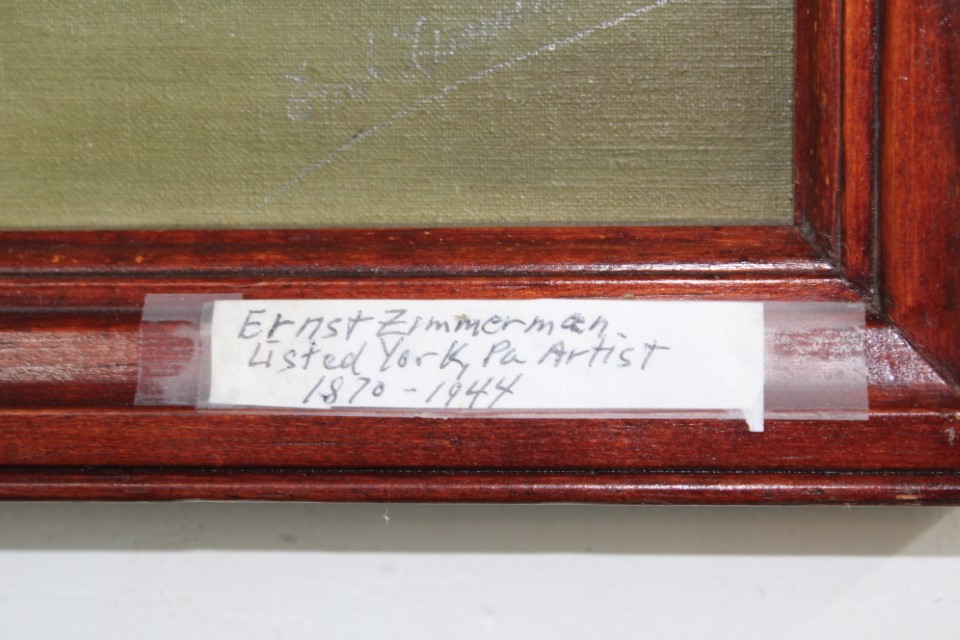 Ernst Zimmerman.
Listed York, Pa Artist
1870 - 1944